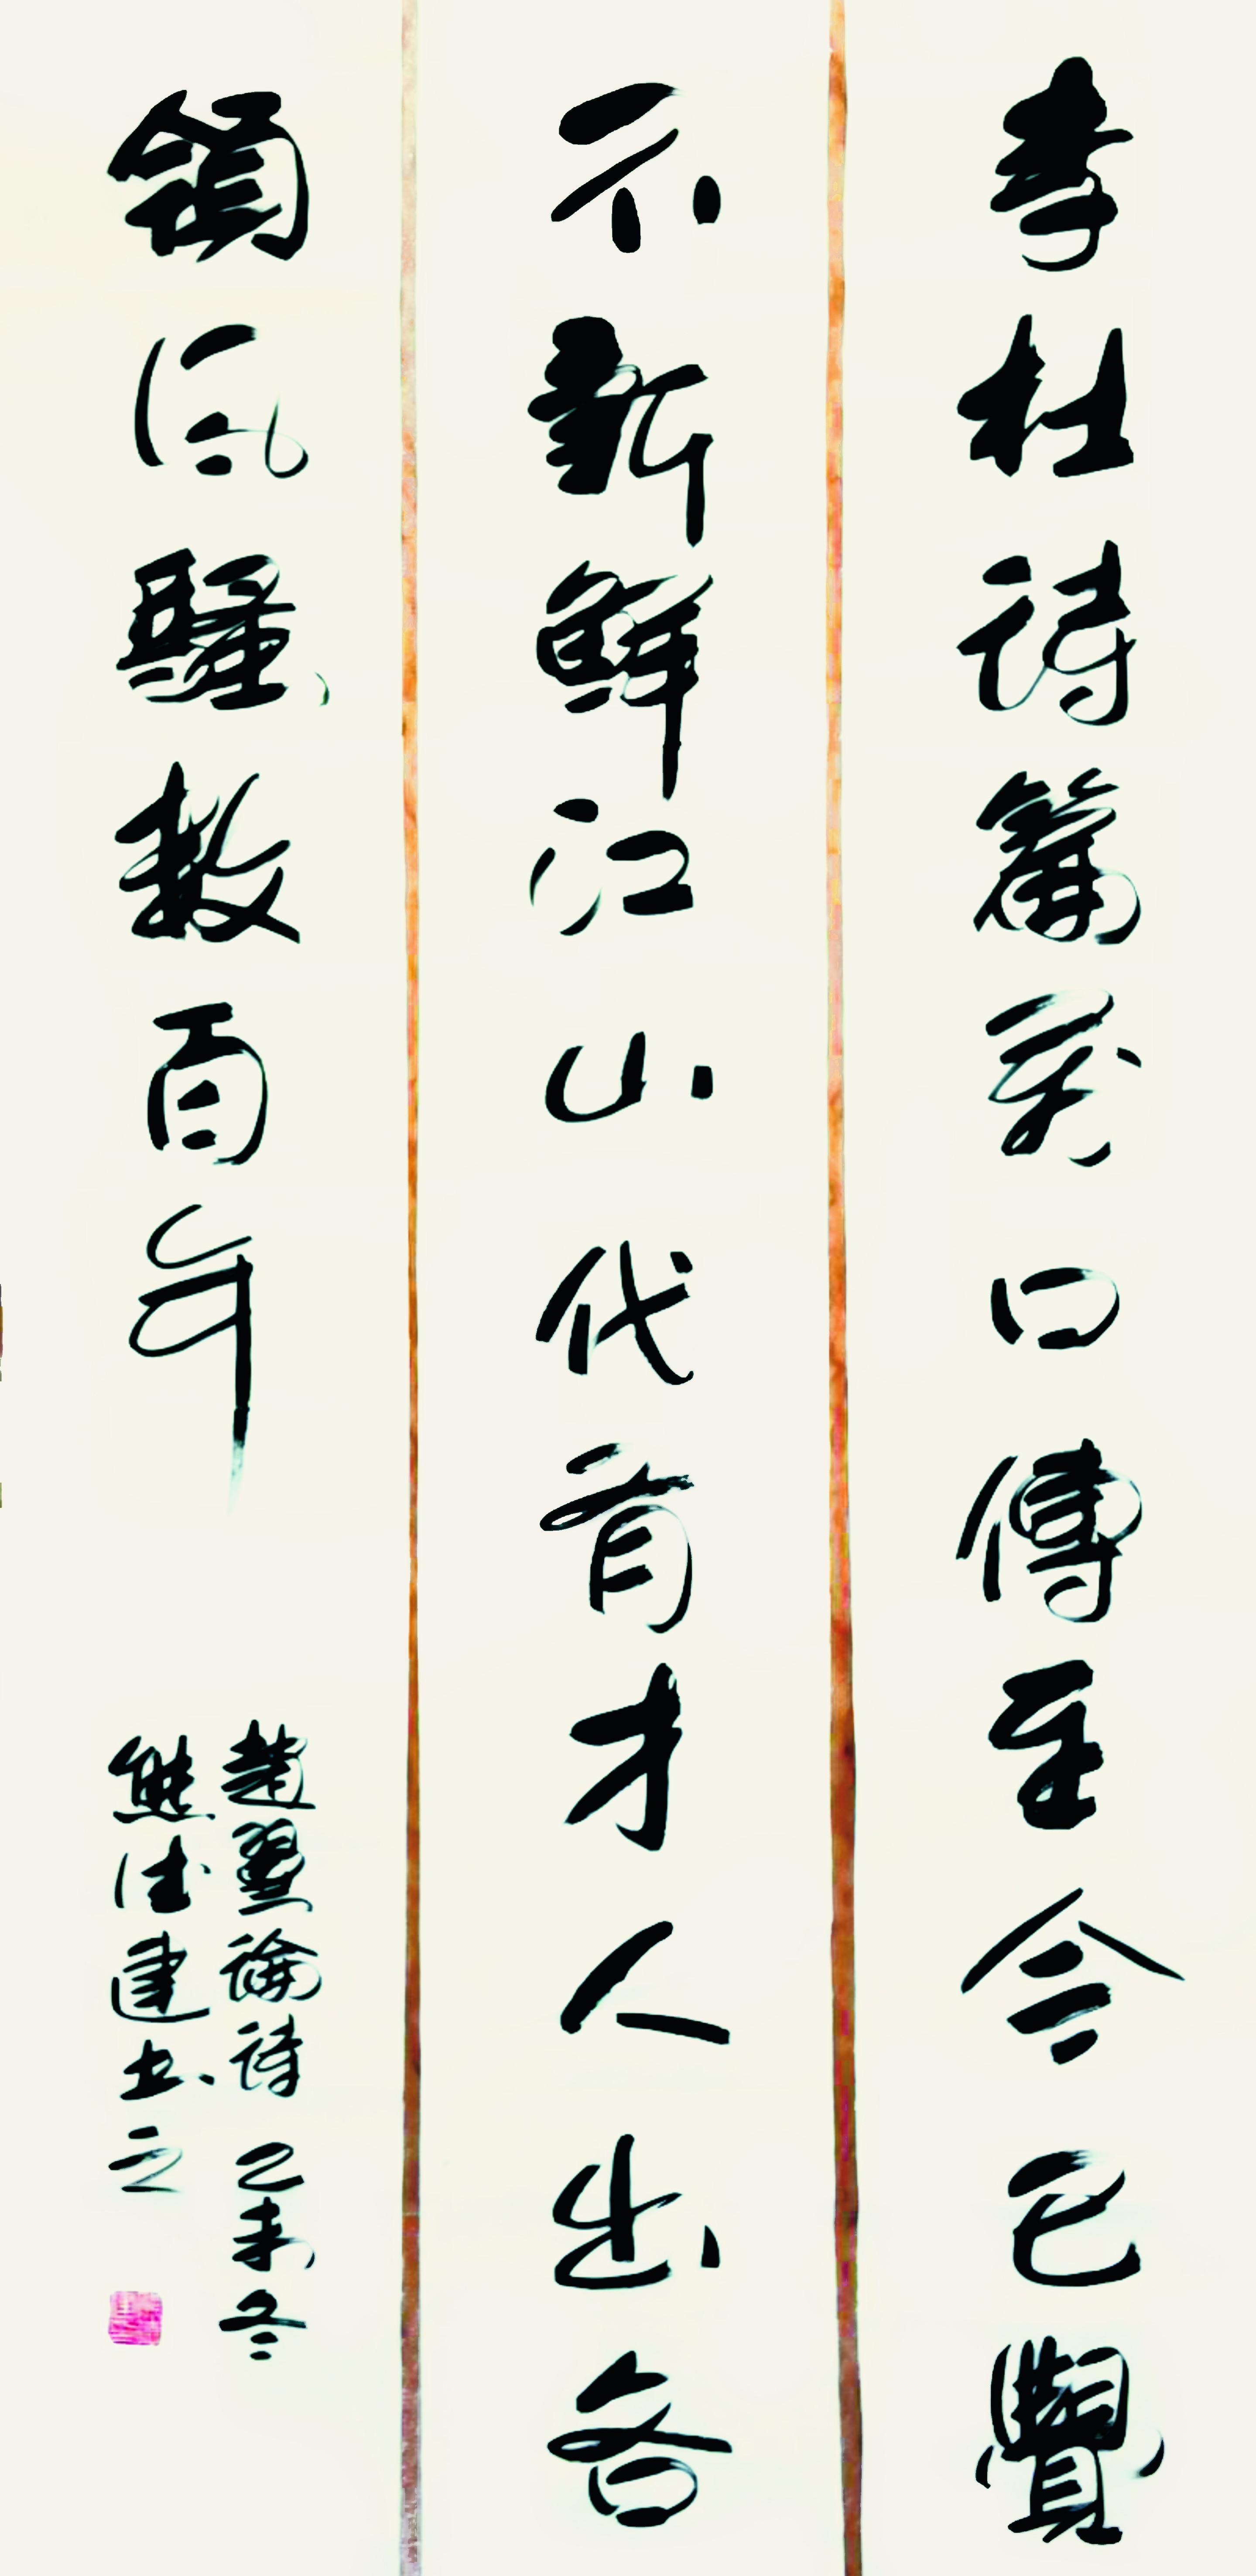 李杜詩篇萬口傳至今已覺
不新鮮江山代有才人出各
領風騷數百年
趙翼論詩 乙未冬
熊德建书之